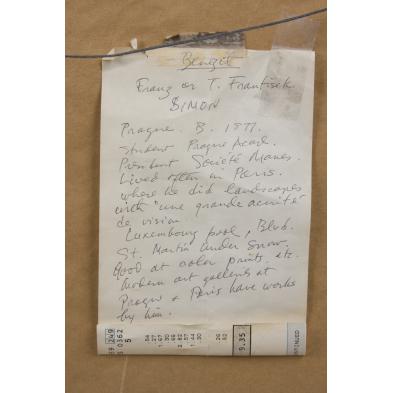 Benezit
Franz or T. Frantisek
SIMON
Prague. B. 1877.
Student Prague Acad.
Président Société Manes.
Lived often in Paris.
where he did landscapes
with "une grande acuité
de vision
Luxembourg pool, Blvd.
St. Martin under snow.
Good at color prints etc.
Modern art galleries at
Prague & Paris have works
by him.
9.35